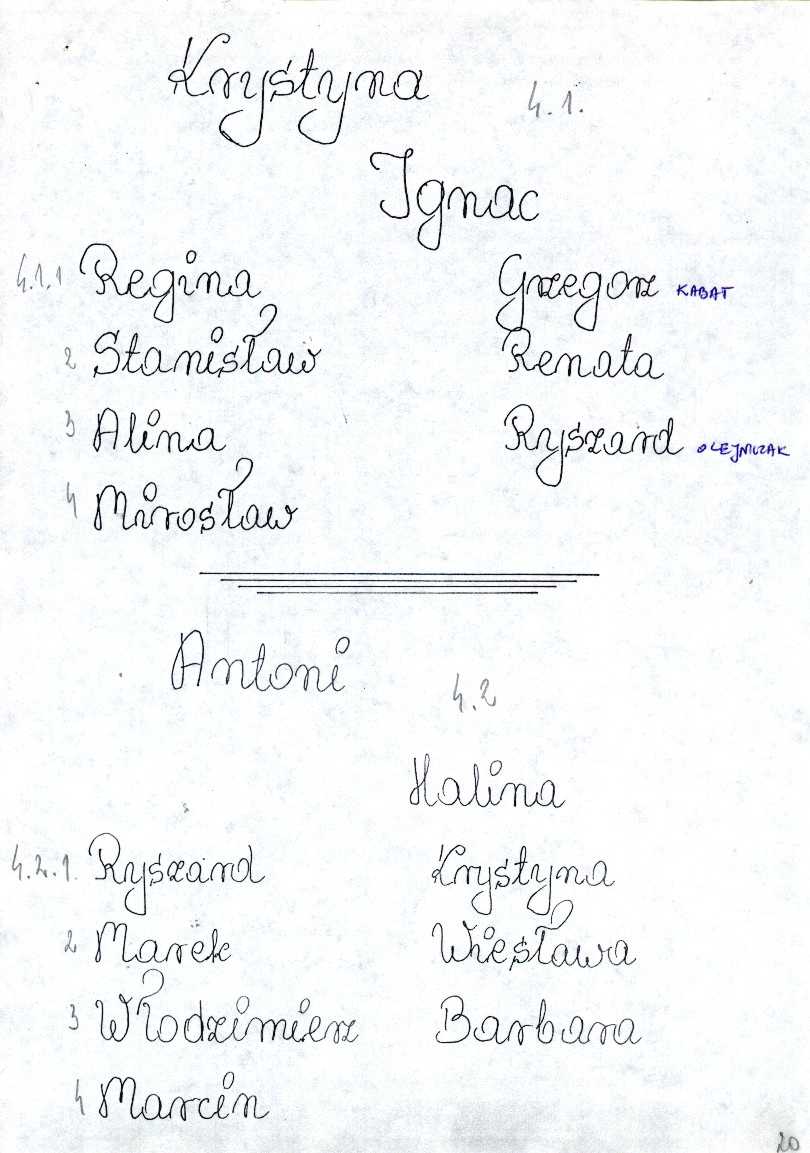 Krystyna 4.1.
Ignac
4.1.1 Regina Grzegorz KABAT
2 Stanisław Renata
3 Alina Ryszard OLEJNICZAK
4 Mirosław
Antoni 4.2
Halina
4.2.1. Ryszard Krystyna
2 Marek Wiesława
3 Włodzimierz Barbara
4 Marcin
20